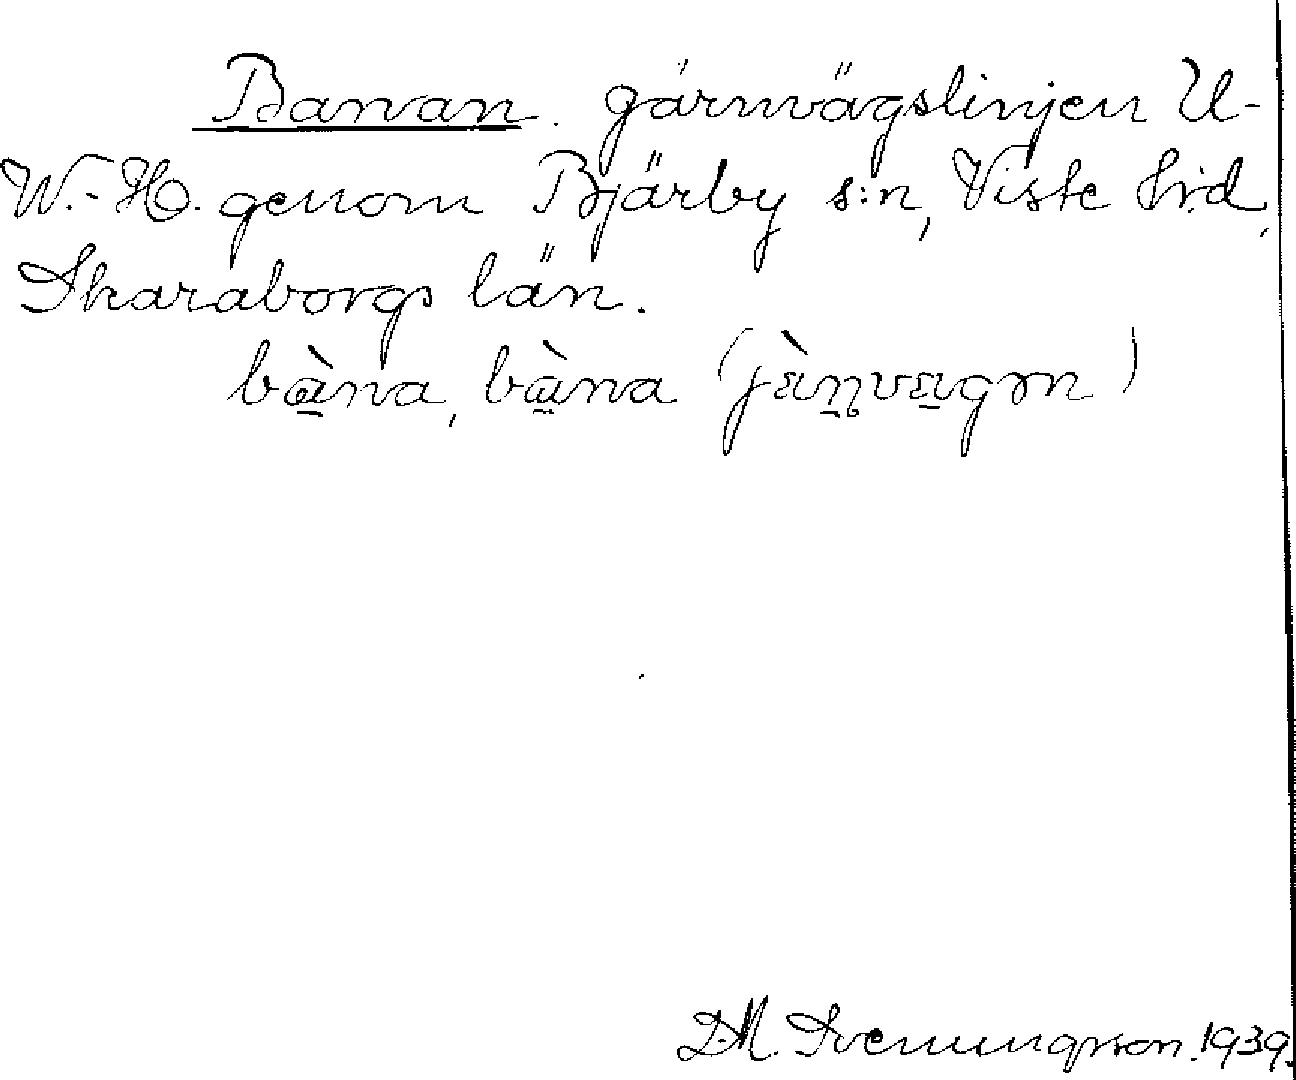 Banan. järnvägslinjen U-
W.-H. genom Bjärby s:n, Viste hrd,
Skaraborgs län.
bɑ̀na, bɑ̀na (jæ̀ṇvægən)
D.M. Svenungsson. 1939.